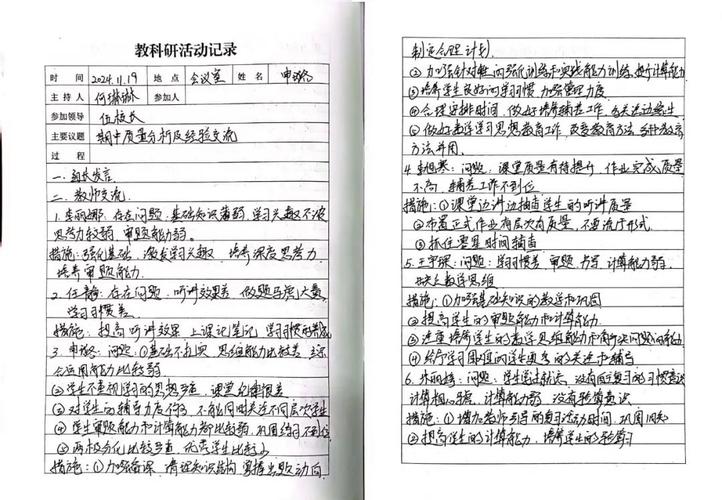 教科研活动记录
时间 2024.11.19 地点 会议室 姓名
主持人 何琳琳 参加人
参加领导 伍校长
主要议题 期中质量分析及经验交流
过程
一、组长发言
二、教师交流
1. 李丽娜: 存在问题: 基础知识薄弱, 学习兴趣不浓
思考力较弱, 审题能力弱。
措施: 强化基础, 激发学习兴趣, 培养深度思考力
培养审题能力。
2. 任静: 存在问题: 听讲效果差, 做题马虎大意,
学习习惯差。
措施: 提高听讲效果 上课记笔记 学习习惯的养成
3. 申 问题: ①基础不扎实 思维能力比较差 综
合运用能力比较弱
②学生不重视学习的思想 课堂纪律很差
③对学生的辅导力度不够, 不能同时关注不同层次学生
④学生审题能力和计算能力都比较弱, 巩固练习不到位
⑤两极分化比较严重, 优秀学生比较少
措施: ①加强备课 清理知识结构 掌握出题动向
制定合理计划
② 加强针对性的强化训练和实践能力训练, 提升计算能力
③培养学生良好的学习习惯 加强管理力度
④合理安排时间, 做好培优辅差工作, 多关注边缘生
⑤做好数学学习思想教育工作, 改变教育方法, 多种教育
方法并用。
4. 寒: 问题: 课堂质量有待提升, 作业完成质量
不高, 辅差工作不到位
措施: ①课堂边讲边抽查学生的听讲质量
②布置正式作业有层次有质量, 不要流于形式
③抓住零星时间抽查
5. 王宇琛: 问题: 学习习惯差, 审题、书写、计算能力弱,
缺乏数学思维
措施: ①加强基础知识的教学和巩固
②提高学生的审题能力和计算能力
③注重培养学生的数学思维能力和解决问题的能力
④给予学习困难的学生更多的关注和辅导
6. 林丽娟: 问题: 学生学过就忘, 没有回顾复习的习惯意识
计算粗心, 计算能力弱 没有验算意识
措施: ①增加老师引导的复习活动时间, 巩固旧知
②提高学生的计算能力, 培养学生的验算习